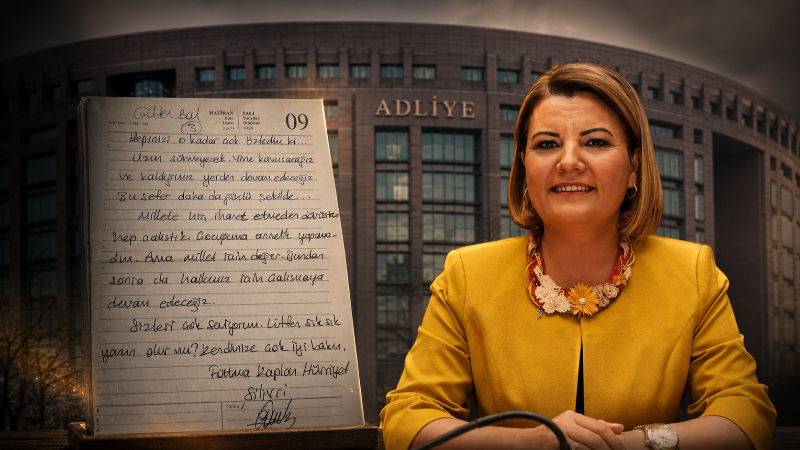 ADLİYE
Güler Bal
HAZİRAN SALI
June Tuesday
09
(3)
Hepinizi o kadar çok özledim ki...
Uzun sürmeyecek. Yine kavuşacağız
ve kaldığımız yerden devam edeceğiz.
Bu sefer daha da güçlü şekilde...
Millete hiç ihanet etmeden dürüstçe
hep çalıştık. Çocuğuma annelik yapama-
dım. Ama millet için değer. Bundan
sonra da halkımız için çalışmaya
devam edeceğiz.
Sizleri çok seviyorum. Lütfen sık sık
yazın olur mu? Kendinize çok iyi bakın.
Fatma Kaplan Hürriyet
Silivri
Notlar